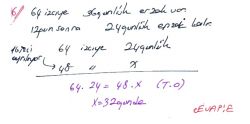 6) 64 izciye 36 günlük erzak var
12 gün sonra 24 günlük erzak kalır.
16 izci ayrılıyor 64 izciye 24 günlük
48 " x
64 . 24 = 48 . x (T.O)
x = 32 günde
CEVAP: E